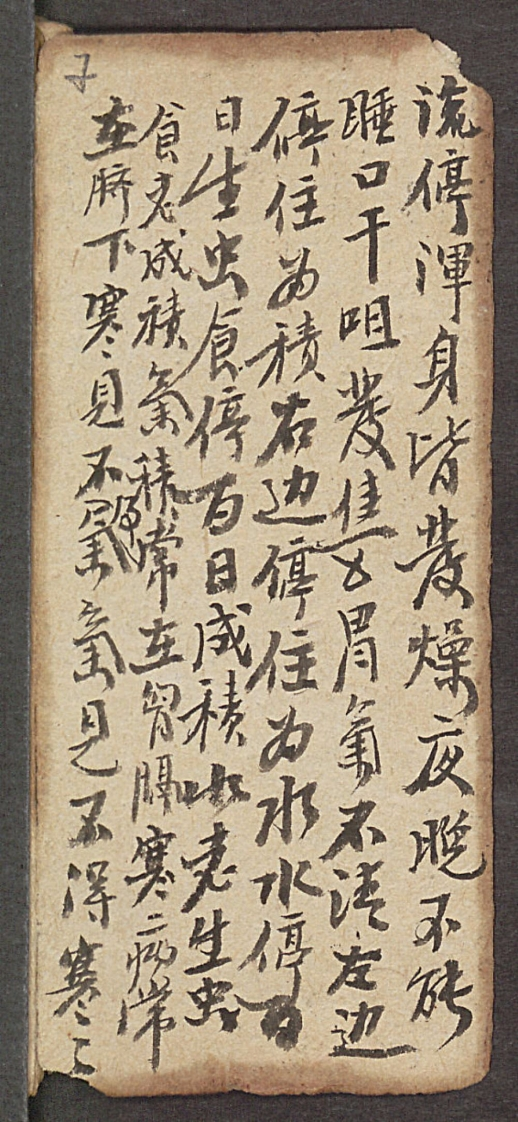 流停渾身皆發燥夜晚不能
睡口干咀發焦又胃氣不清左边
停住为積右边停住为水水停百
日生虫食停百日成積水老生虫
食老成積氣積常在胷膈寒二病常
在臍下寒々見不得氣氣見不得寒々